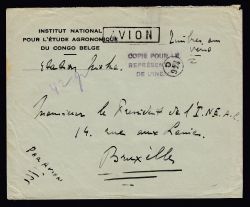 AVION
INSTITUT NATIONAL
POUR L'ÉTUDE AGRONOMIQUE
DU CONGO BELGE
Timbres au
verso
COPIE POUR LE
DE L'INÉAC
Monsieur le President de l'I.N.E.A.C
14, rue aux Laines
Bruxelles
PAR AVION